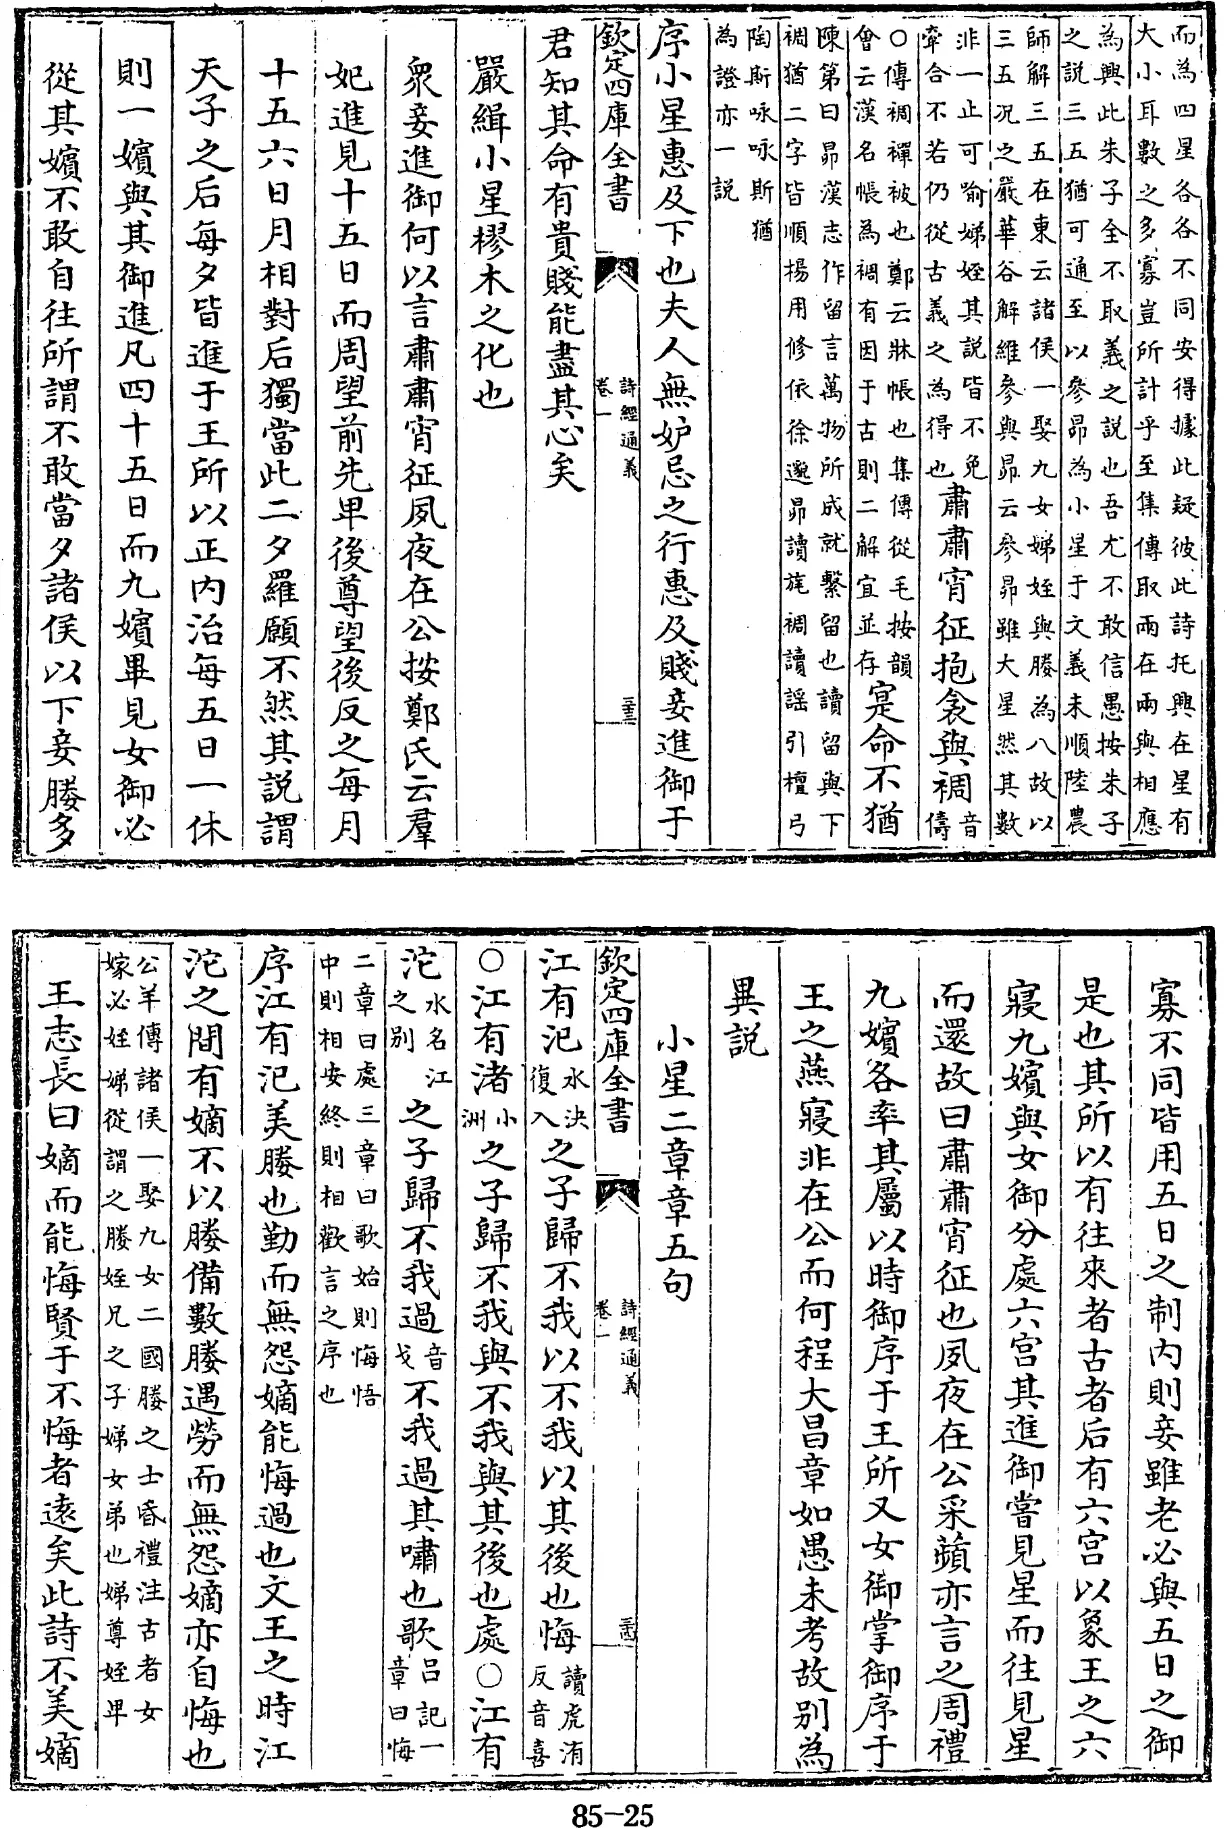 而為四星各各不同安得據此疑彼此詩托興在星有
大小耳數之多寡豈所計乎至集傳取兩在兩與相應
為興此朱子全不取義之說也吾尤不敢信愚按朱子
之說三五猶可通至以參昴為小星于文義未順陸農
師解三五在東云諸侯一娶九女娣姪與媵為八故以
三五況之嚴華谷解維參與昴云參昴雖大星然其數
非一止可喻娣姪其說皆不免
牽合不若仍從古義之為得也
肅肅宵征抱衾與裯音儔
○傳裯襌被也鄭云牀帳也集傳從毛按韻
會云漢名帳為裯有因于古則二解宜並存
寔命不猶
陳第曰昴漢志作留言萬物所成就繫留也讀留與下
裯猶二字皆順楊用修依徐邈昴讀旄裯讀謠引檀弓
陶斯咏咏斯猶
為證亦一說
序小星惠及下也夫人無妒忌之行惠及賤妾進御于
欽定四庫全書
詩經通義
卷一
三十三
君知其命有貴賤能盡其心矣
嚴緝小星樛木之化也
衆妾進御何以言肅肅宵征夙夜在公按鄭氏云羣
妃進見十五日而周望前先卑後尊望後反之每月
十五六日月相對后獨當此二夕羅願不然其說謂
天子之后每夕皆進于王所以正内治每五日一休
則一嬪與其御進凡四十五日而九嬪畢見女御必
從其嬪不敢自往所謂不敢當夕諸侯以下妾媵多
寡不同皆用五日之制内則妾雖老必與五日之御
是也其所以有往來者古者后有六宮以象王之六
寢九嬪與女御分處六宮其進御嘗見星而往見星
而還故曰肅肅宵征也夙夜在公采蘋亦言之周禮
九嬪各率其屬以時御序于王所又女御掌御序于
王之燕寢非在公而何程大昌章如愚未考故別為
異說
小星二章章五句
欽定四庫全書
詩經通義
卷一
三十四
江有汜水決復入之子歸不我以不我以其後也悔讀虎洧反音喜
○江有渚小洲之子歸不我與不我與其後也處○江有
沱水名江之別之子歸不我過音戈不我過其嘯也歌呂記一章曰悔
二章曰處三章曰歌始則悔悟
中則相安終則相歡言之序也
序江有汜美媵也勤而無怨嫡能悔過也文王之時江
沱之間有嫡不以媵備數媵遇勞而無怨嫡亦自悔也
公羊傳諸侯一娶九女二國媵之士昏禮注古者女
嫁必姪娣從謂之媵姪兄之子娣女弟也娣尊姪卑
王志長曰嫡而能悔賢于不悔者遠矣此詩不美嫡
85-25